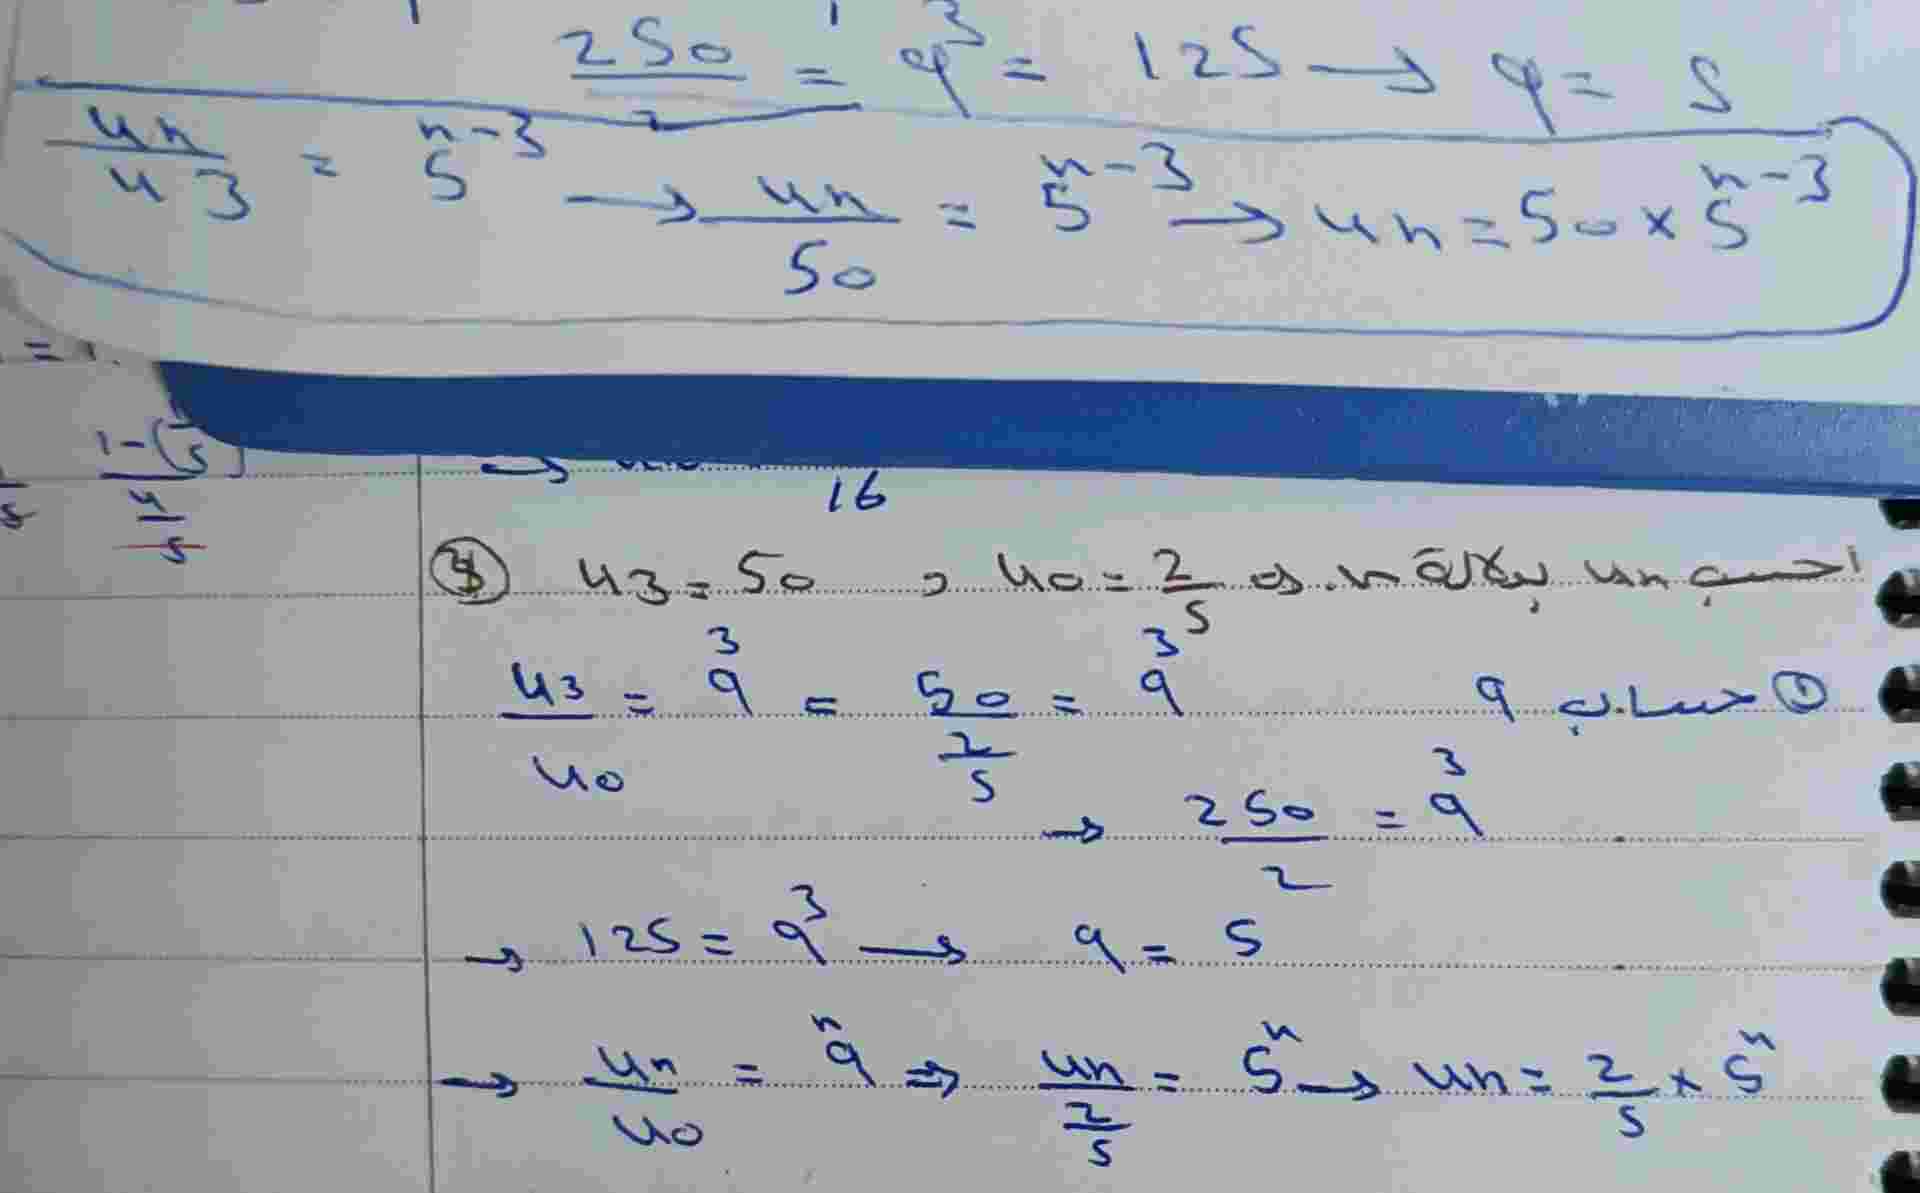 250/2 = q³ = 125 → q = 5
un/u3 = 5ⁿ⁻³ → un/50 = 5ⁿ⁻³ → un = 50 × 5ⁿ⁻³
16
u3 = 50 و u0 = 2/5 احسب un بدلالة n
① حساب q
u3/u0 = q³ = 50/(2/5) = q³
→ 250/2 = q³
→ 125 = q³ → q = 5
→ un/u0 = qⁿ ⇒ un/(2/5) = 5ⁿ → un = 2/5 × 5ⁿ